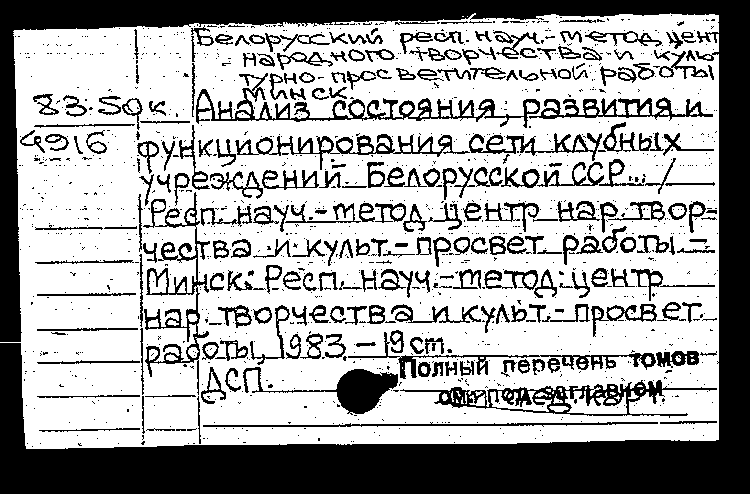 Белорусский респ. науч.-метод. цент
народного творчества и куль-
турно-просветительной работы
Минск.
83-50к. Анализ состояния, развития и
4916 функционирования сети клубных
учреждений Белорусской ССР... /
Респ. науч.-метод. центр нар. твор-
чества и культ.-просвет. работы.—
Минск: Респ. науч.-метод. центр
нар. творчества и культ.-просвет.
работы, 1983.—19 ст.
ДСП.
Полный перечень томов
под заглавием